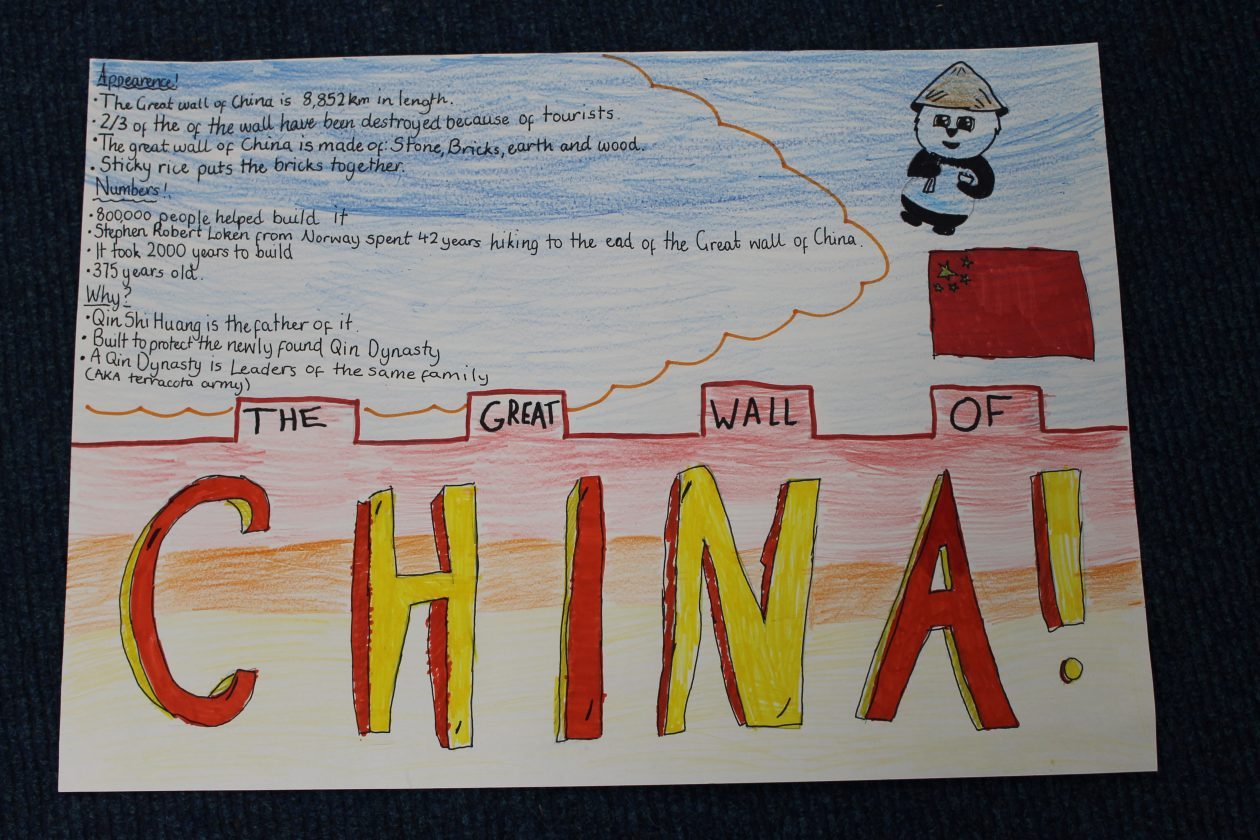 Appearence!
• The Great wall of China is 8,852km in length.
• 2/3 of the of the wall have been destroyed because of tourists.
• The great wall of China is made of: Stone, Bricks, earth and wood.
• Sticky rice puts the bricks together.
Numbers!
• 800,000 people helped build it
• Stephen Robert Loken from Norway spent 42 years hiking to the end of the Great wall of China.
• It took 2000 years to build
• 375 years old.
Why?
• Qin Shi Huang is the father of it.
• Built to protect the newly found Qin Dynasty
• A Qin Dynasty is Leaders of the same family
(AKA terracota army)
THE GREAT WALL OF
CHINA!